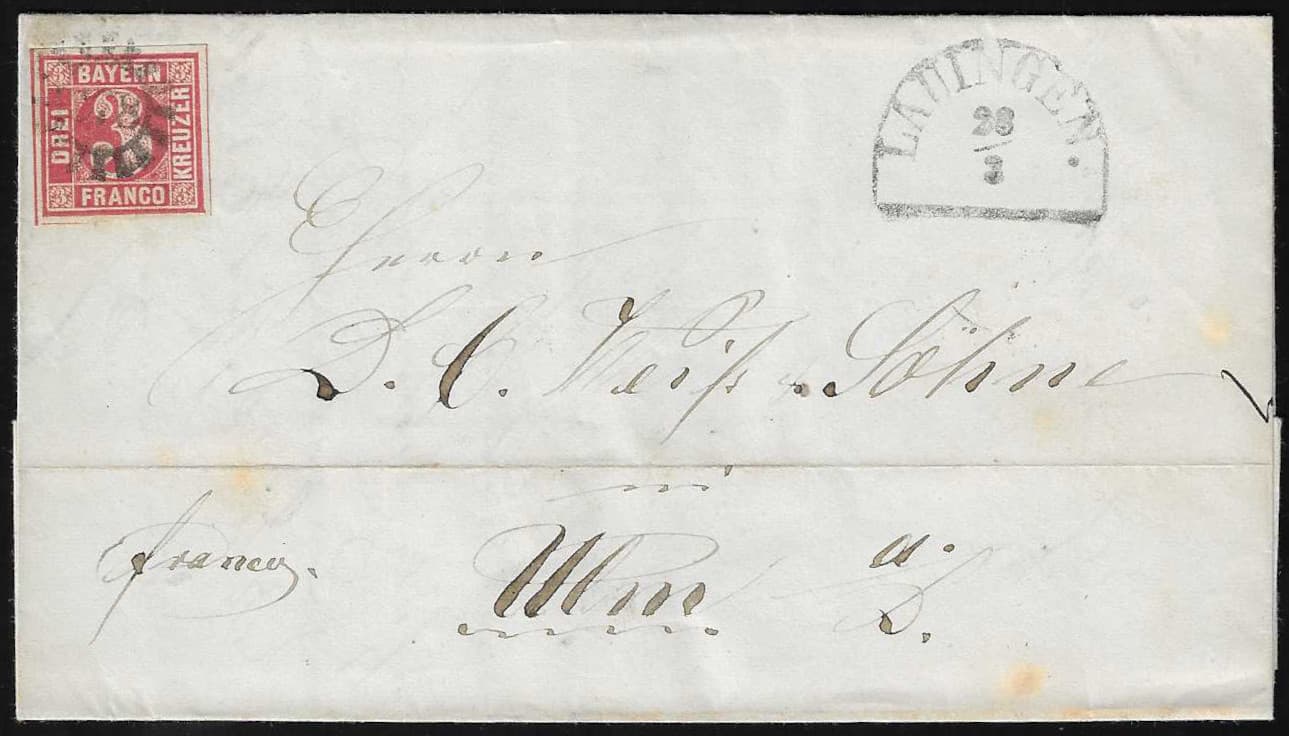 BAYERN
DREI
KREUZER
3
FRANCO
LAUINGEN
28
3
Herrn
D. C. Weiß Söhne
in
Ulm a. D.
franco.